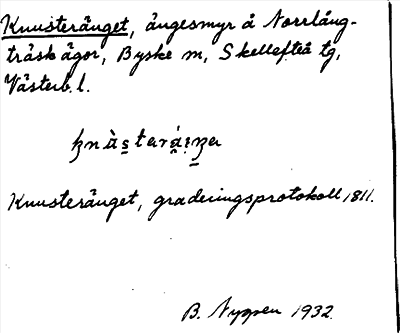 Knusteränget, ängesmyr å Norrlång-
träsk ägor, Byske sn, Skellefteå tg,
Västerb. l.
Knusteränget, graderingsprotokoll 1811.
B. Nygren 1932.